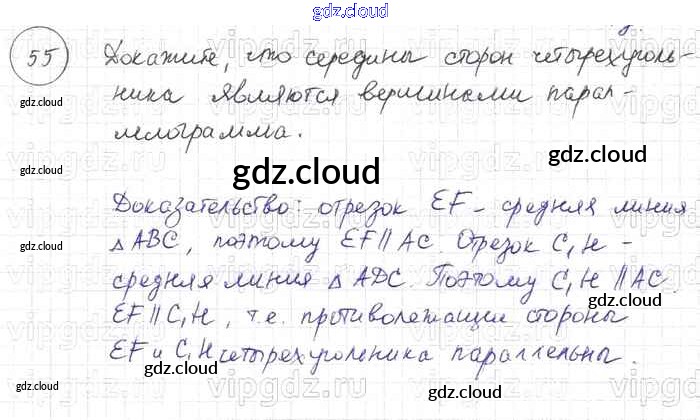 gdz.cloud
55 Докажите, что середины сторон четырехуголь-
gdz.cloud
ника являются вершинами парал-
лелограмма.
gdz.cloud
gdz.cloud
Доказательство: отрезок EF - средняя линия
gdz.cloud
△ ABC, поэтому EF ∥ AC. Отрезок C₁H -
средняя линия △ ADC. Поэтому C₁H ∥ AC
gdz.cloud
EF ∥ C₁H, т.е. противолежащие стороны
EF и C₁H четырехугольника параллельны.
gdz.cloud
gdz.cloud
gdz.cloud